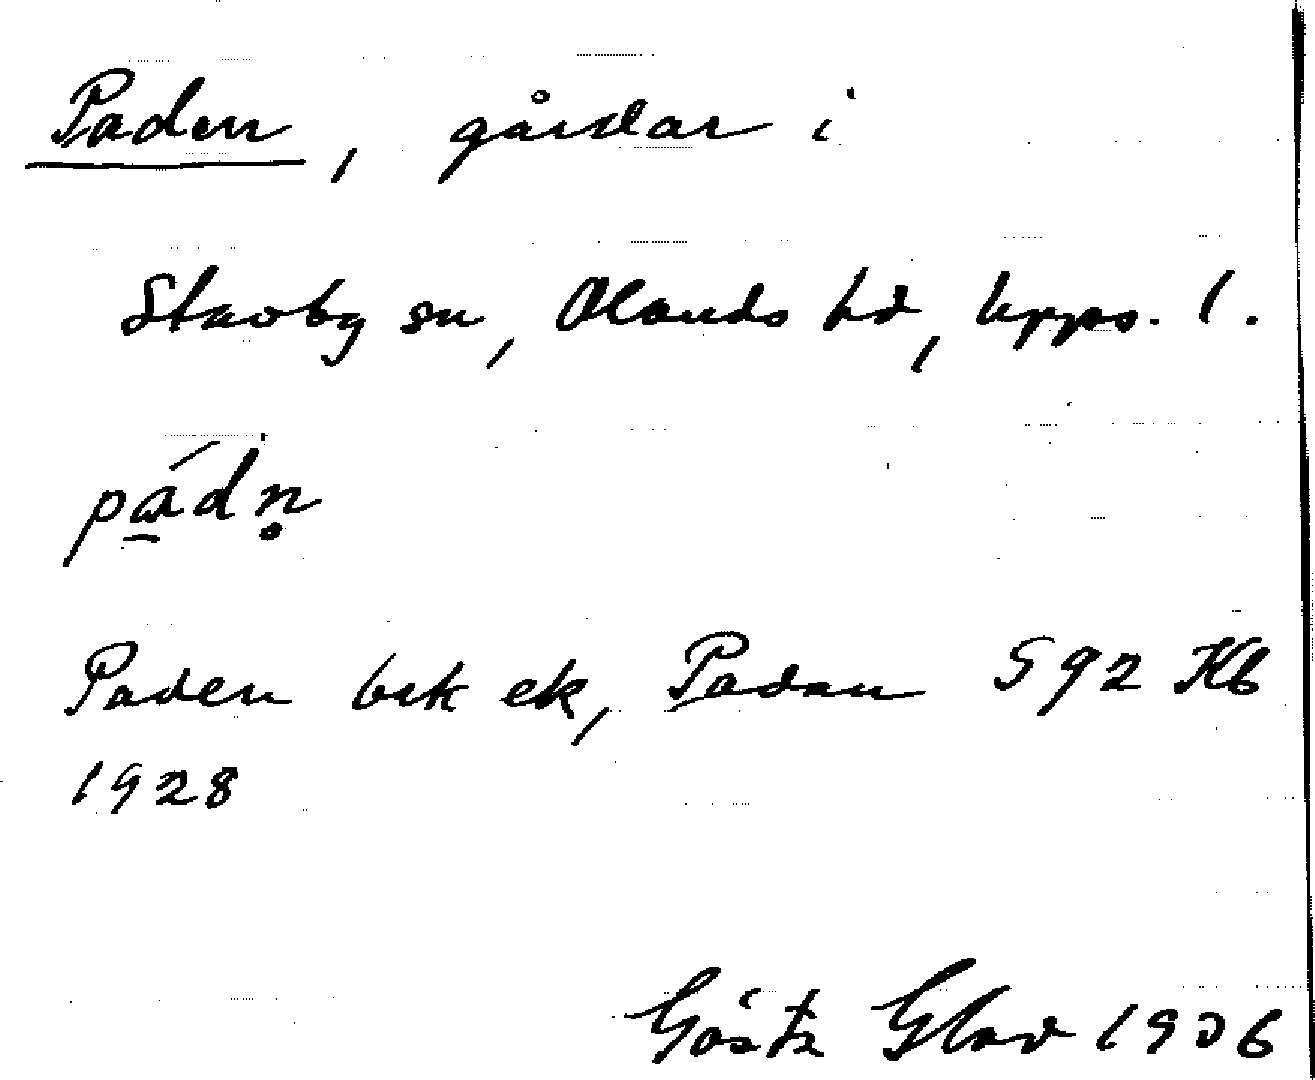 Paden, gårdar i
Stavby sn, Olands hd, Upps. l.
pa̱´dṇ
Paden bek ek, Padan 592 Kb
1928
Gösta Glad 1936